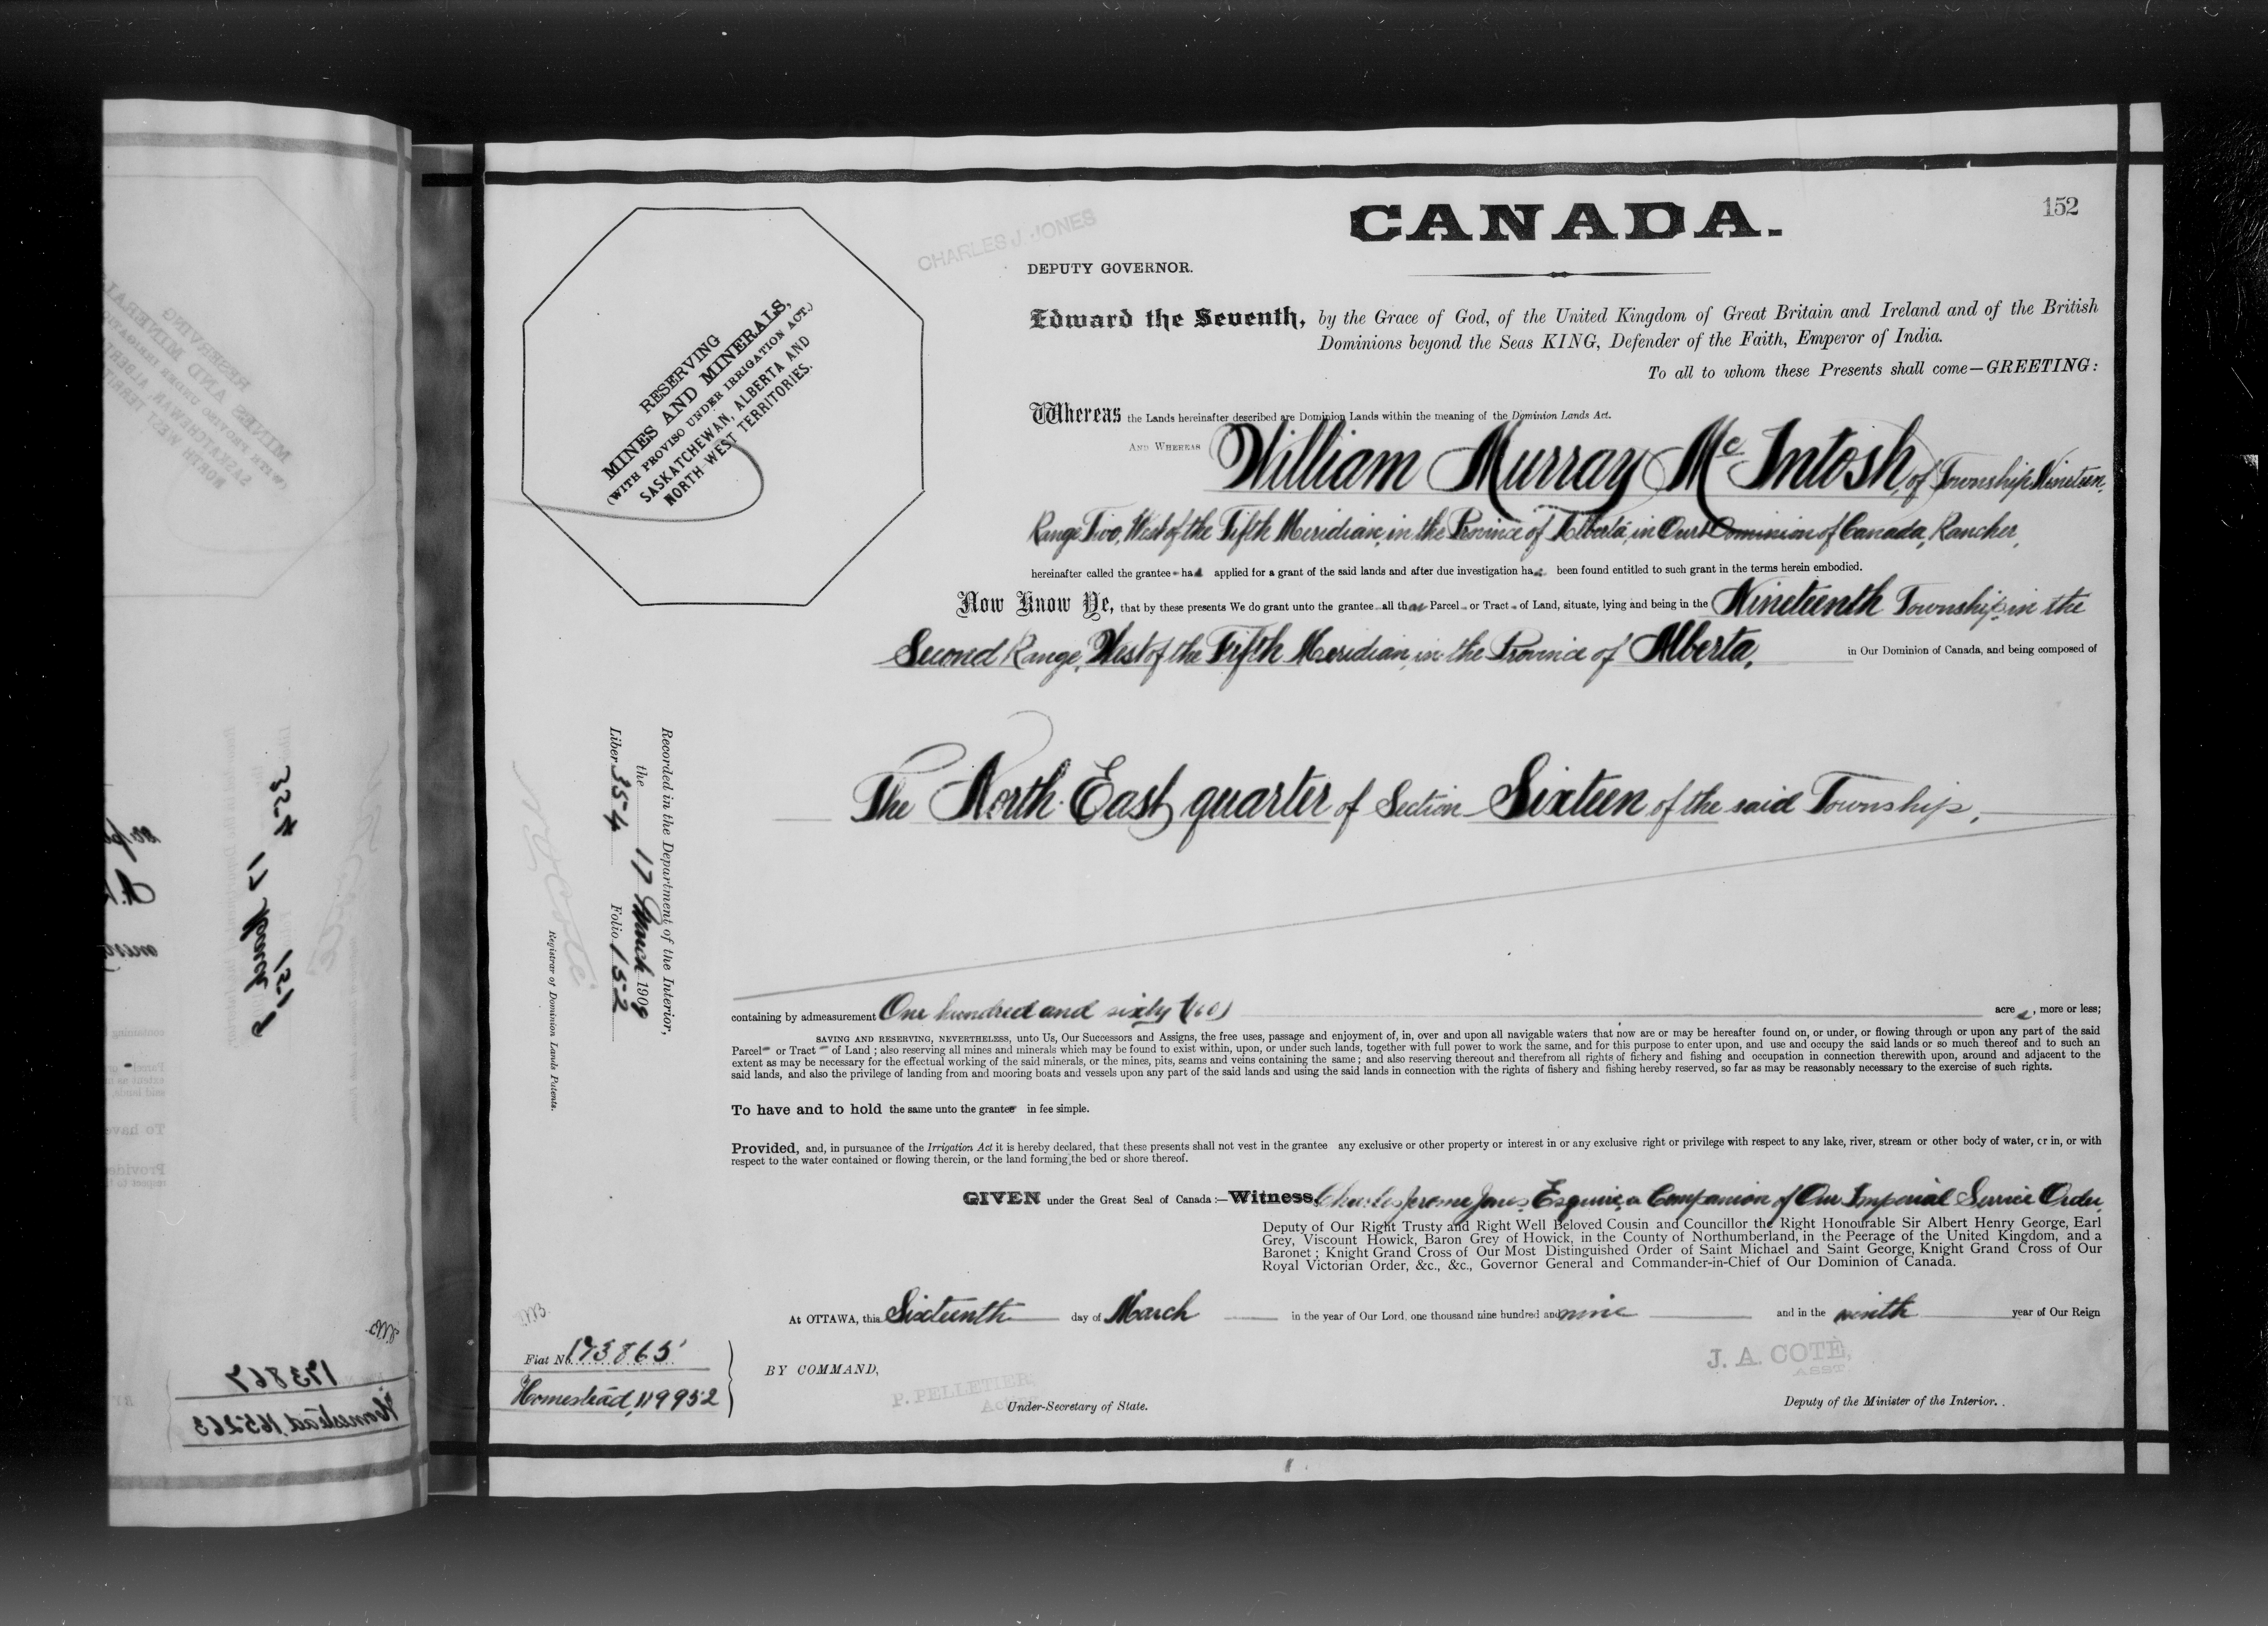 152
CANADA.
CHARLES J. JONES
DEPUTY GOVERNOR.
RESERVING
MINES AND MINERALS,
(WITH PROVISO UNDER IRRIGATION ACT.)
SASKATCHEWAN, ALBERTA AND
NORTH WEST TERRITORIES.
Edward the Seventh, by the Grace of God, of the United Kingdom of Great Britain and Ireland and of the British
Dominions beyond the Seas KING, Defender of the Faith, Emperor of India.
To all to whom these Presents shall come—GREETING:
Whereas the Lands hereinafter described are Dominion Lands within the meaning of the Dominion Lands Act.
AND WHEREAS William Murray McIntosh, of Township Nineteen,
Range Two, West of the Fifth Meridian, in the Province of Alberta, in Our Dominion of Canada, Rancher,
hereinafter called the grantee has applied for a grant of the said lands and after due investigation has been found entitled to such grant in the terms herein embodied.
Now Know Ye, that by these presents We do grant unto the grantee all that Parcel or Tract of Land, situate, lying and being in the Nineteenth Township, in the
Second Range, West of the Fifth Meridian, in the Province of Alberta, in Our Dominion of Canada, and being composed of
The North East quarter of Section Sixteen of the said Township,
Recorded in the Department of the Interior,
the 17 March 1909
Liber 354 Folio 152
Registrar of Dominion Lands Patents.
containing by admeasurement One hundred and sixty (160) acres, more or less;
SAVING AND RESERVING, NEVERTHELESS, unto Us, Our Successors and Assigns, the free uses, passage and enjoyment of, in, over and upon all navigable waters that now are or may be hereafter found on, or under, or flowing through or upon any part of the said
Parcel or Tract of Land; also reserving all mines and minerals which may be found to exist within, upon, or under such lands, together with full power to work the same, and for this purpose to enter upon, and use and occupy the said lands or so much thereof and to such an
extent as may be necessary for the effectual working of the said minerals, or the mines, pits, seams and veins containing the same; and also reserving thereout and therefrom all rights of fishery and fishing and occupation in connection therewith upon, around and adjacent to the
said lands, and also the privilege of landing from and mooring boats and vessels upon any part of the said lands and using the said lands in connection with the rights of fishery and fishing hereby reserved, so far as may be reasonably necessary to the exercise of such rights.
To have and to hold the same unto the grantee in fee simple.
Provided, and, in pursuance of the Irrigation Act it is hereby declared, that these presents shall not vest in the grantee any exclusive or other property or interest in or any exclusive right or privilege with respect to any lake, river, stream or other body of water, or in, or with
respect to the water contained or flowing therein, or the land forming the bed or shore thereof.
GIVEN under the Great Seal of Canada:—Witness, Charles Jerome Jones, Esquire, a Companion of Our Imperial Service Order,
Deputy of Our Right Trusty and Right Well Beloved Cousin and Councillor the Right Honourable Sir Albert Henry George, Earl
Grey, Viscount Howick, Baron Grey of Howick, in the County of Northumberland, in the Peerage of the United Kingdom, and a
Baronet; Knight Grand Cross of Our Most Distinguished Order of Saint Michael and Saint George, Knight Grand Cross of Our
Royal Victorian Order, &c., &c., Governor General and Commander-in-Chief of Our Dominion of Canada.
At OTTAWA, this Sixteenth day of March in the year of Our Lord, one thousand nine hundred and nine and in the ninth year of Our Reign
Fiat No. 173865
Homestead, 119952
BY COMMAND,
P. PELLETIER,
Acting
Under-Secretary of State.
J. A. COTÉ,
ASST.
Deputy of the Minister of the Interior.